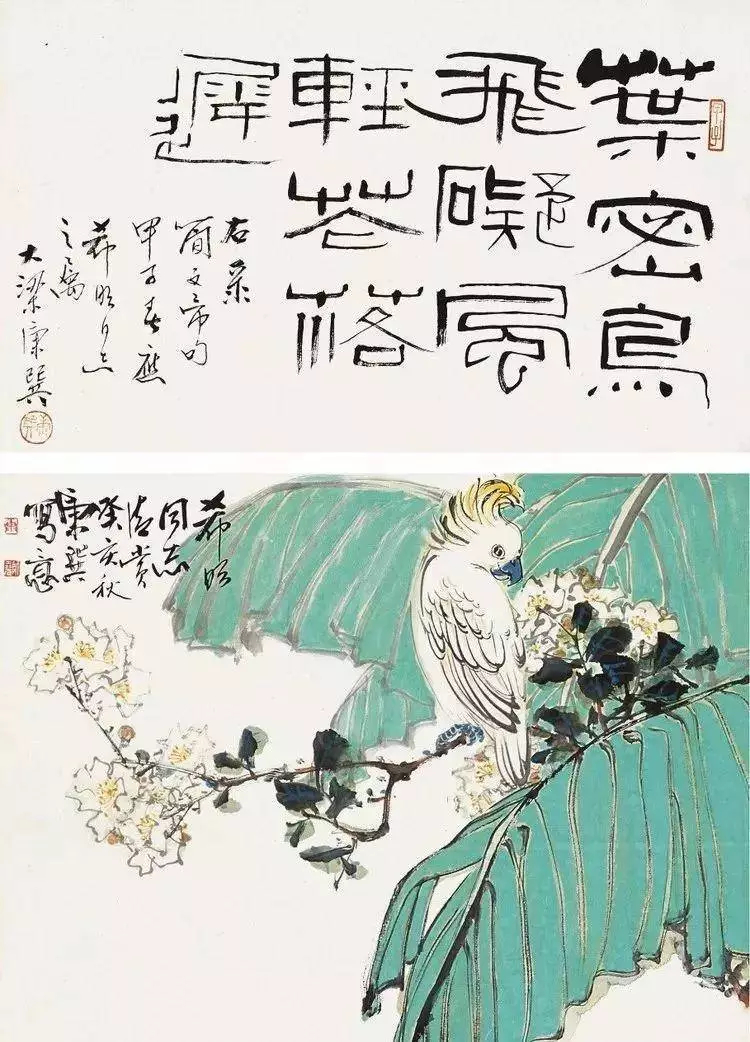 葉密鳥
飛礙風
輕花落
遲
右录
簡文帝句
甲子春應
希明同志
之屬
大梁康巽
甲子
希明
同志
清賞
癸亥秋
康巽
寫意